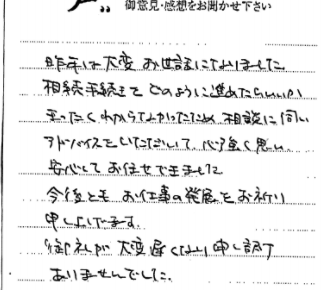 御意見・感想をお聞かせ下さい
昨年は大変お世話になりました
相続手続きをどのように進めたらいいか
まったくわからなかったため 相談に伺い
アドバイスをいただいて、心強く思い
安心してお任せできました
今後とも お仕事の発展をお祈り
申し上げます。
御礼が大変遅くなり申し訳
ありませんでした。